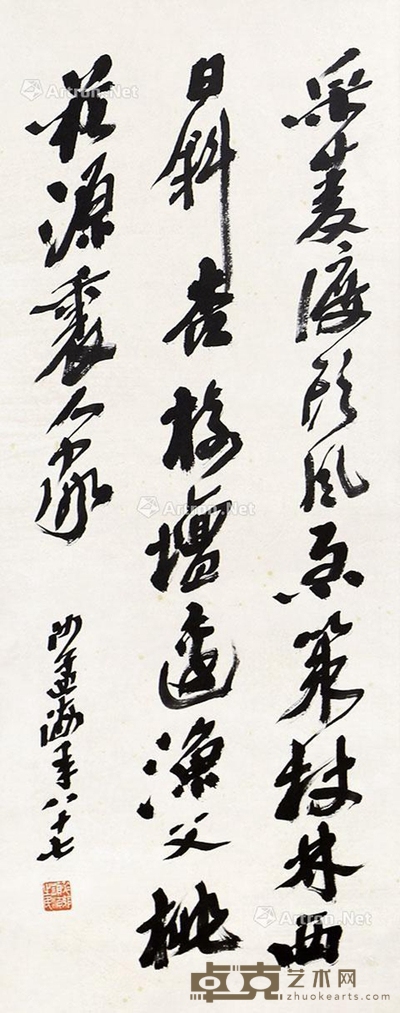 采菱渡頭風急策杖林西
日斜杏樹壇邊漁父桃
花源裏人家
沙孟海年八十七
Artron.Net
Artron.Net
Artron.Net
Artron.Net
Artron.Net
Artron.Net
卓克艺术网
zhuokearts.com